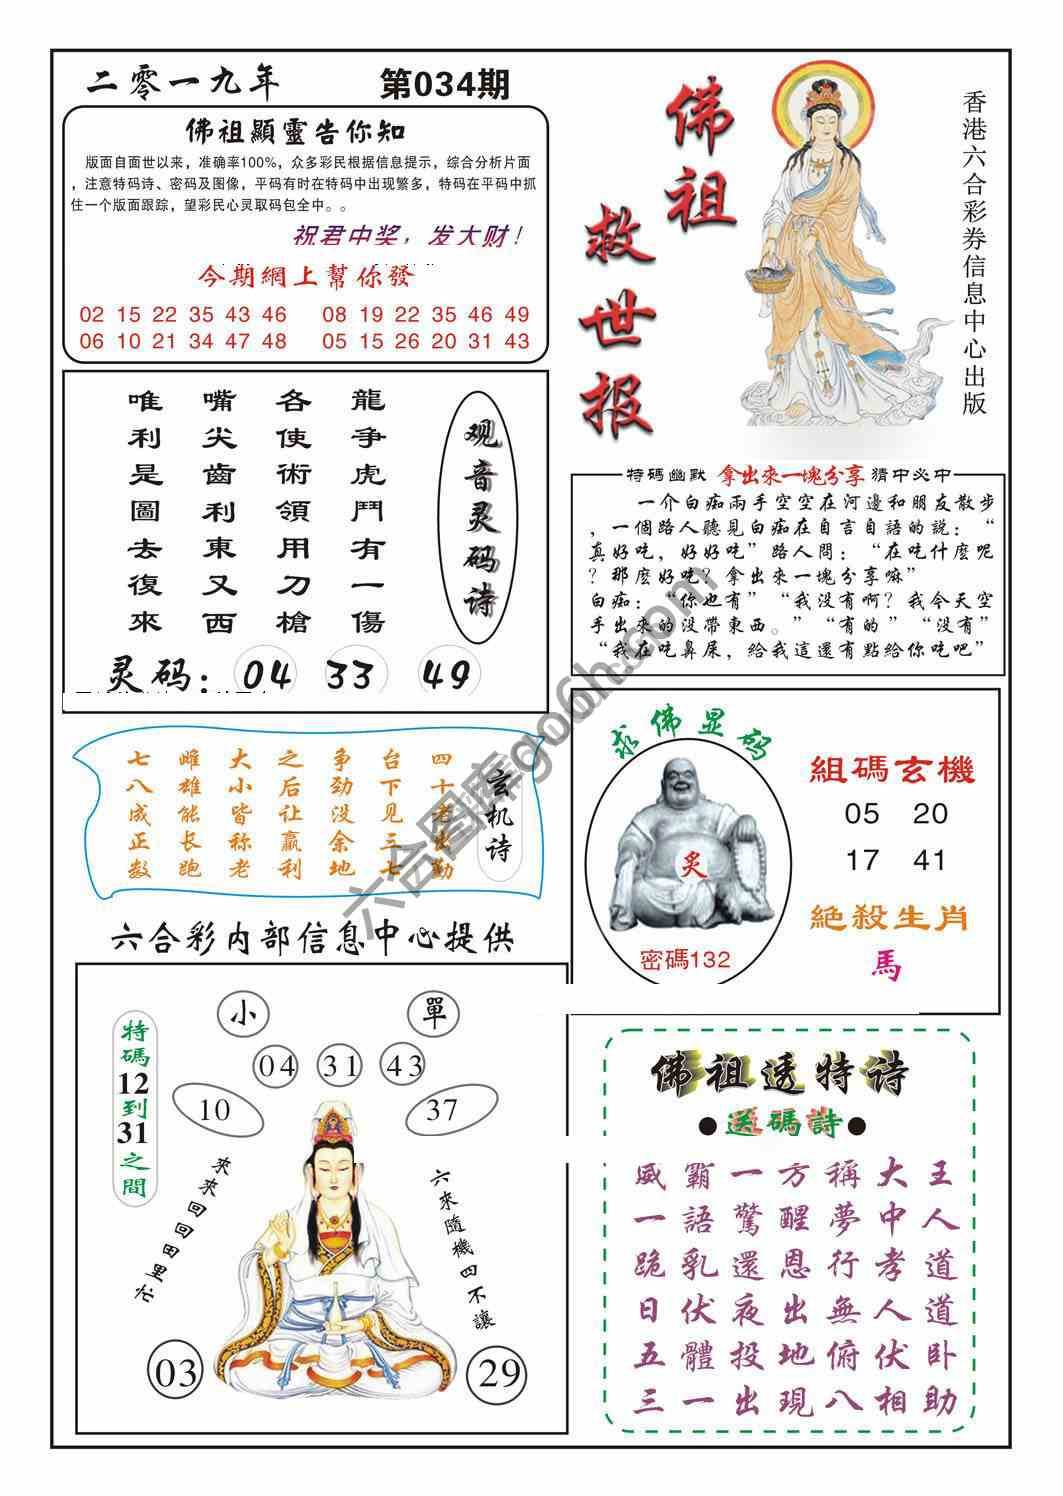 二零一九年 第034期
佛祖顯靈告你知
版面自面世以来，准确率100%，众多彩民根据信息提示，综合分析片面
，注意特码诗、密码及图像，平码有时在特码中出现繁多，特码在平码中抓
住一个版面跟踪，望彩民心灵取码包全中。。
祝君中奖，发大财！
今期網上幫你發
02 15 22 35 43 46 08 19 22 35 46 49
06 10 21 34 47 48 05 15 26 20 31 43
佛祖救世报
香港六合彩券信息中心出版
观音灵码诗
龍争虎鬥有一傷
各使術領用刀槍
嘴尖齒利東又西
唯利是圖去復來
灵码：04 33 49
特碼幽默 拿出來一塊分享 猜中必中
一介白痴兩手空空在河邊和朋友散步
，一個路人聽見白痴在自言自語的説：“
真好吃，好好吃”路人問：“在吃什麽呢
？那麽好吃？拿出來一塊分享嘛”
白痴：“你也有”“我没有啊？我今天空
手出來的没帶東西。”“有的”“没有”
“我在吃鼻屎，給我這還有點給你吃吧”
玄机诗
四十老出勤
台下见三七
争劲没余地
之后让赢利
大小皆称老
雌雄能长跑
七八成正数
求佛显码
炙
密碼132
組碼玄機
05 20
17 41
絶殺生肖
馬
六合彩内部信息中心提供
小 單
04 31 43
10 37
特碼12到31之間
來來回回田里忙
六來隨機四不讓
03 29
佛祖透特诗
●送碼詩●
威霸一方稱大王
一語驚醒夢中人
跪乳還恩行孝道
日伏夜出無人道
五體投地俯伏卧
三一出現八相助
六合图库go6h.com